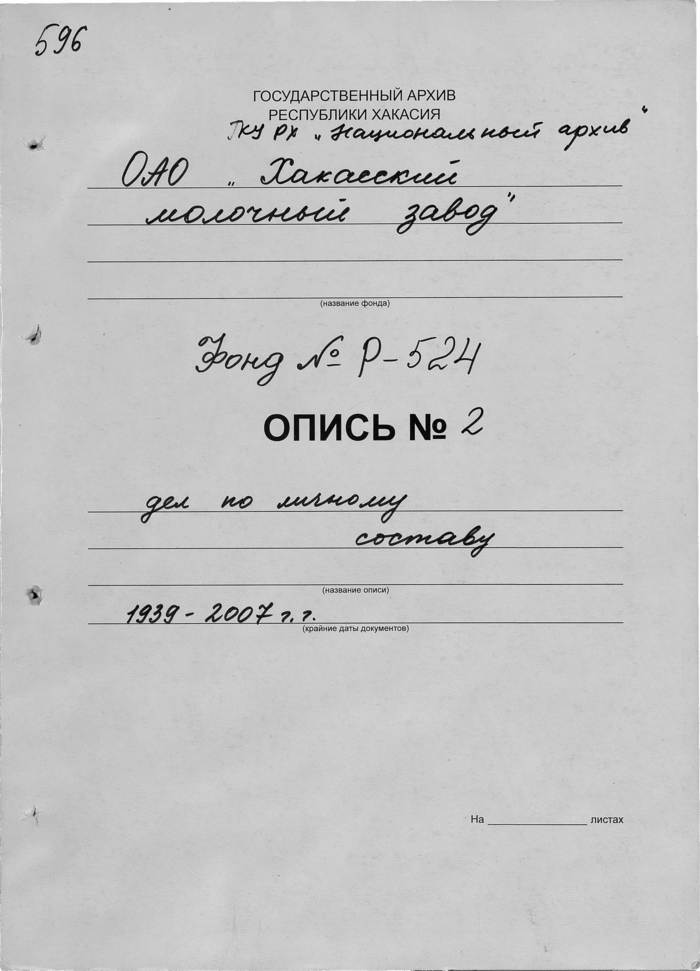 596
ГОСУДАРСТВЕННЫЙ АРХИВ
РЕСПУБЛИКИ ХАКАСИЯ
ГКУ РХ „Национальный архив"
ОАО „Хакасский
молочный завод"
(название фонда)
Фонд № Р-524
ОПИСЬ № 2
дел по личному
составу
(название описи)
1939-2007 г.г.
(крайние даты документов)
На ________________ листах